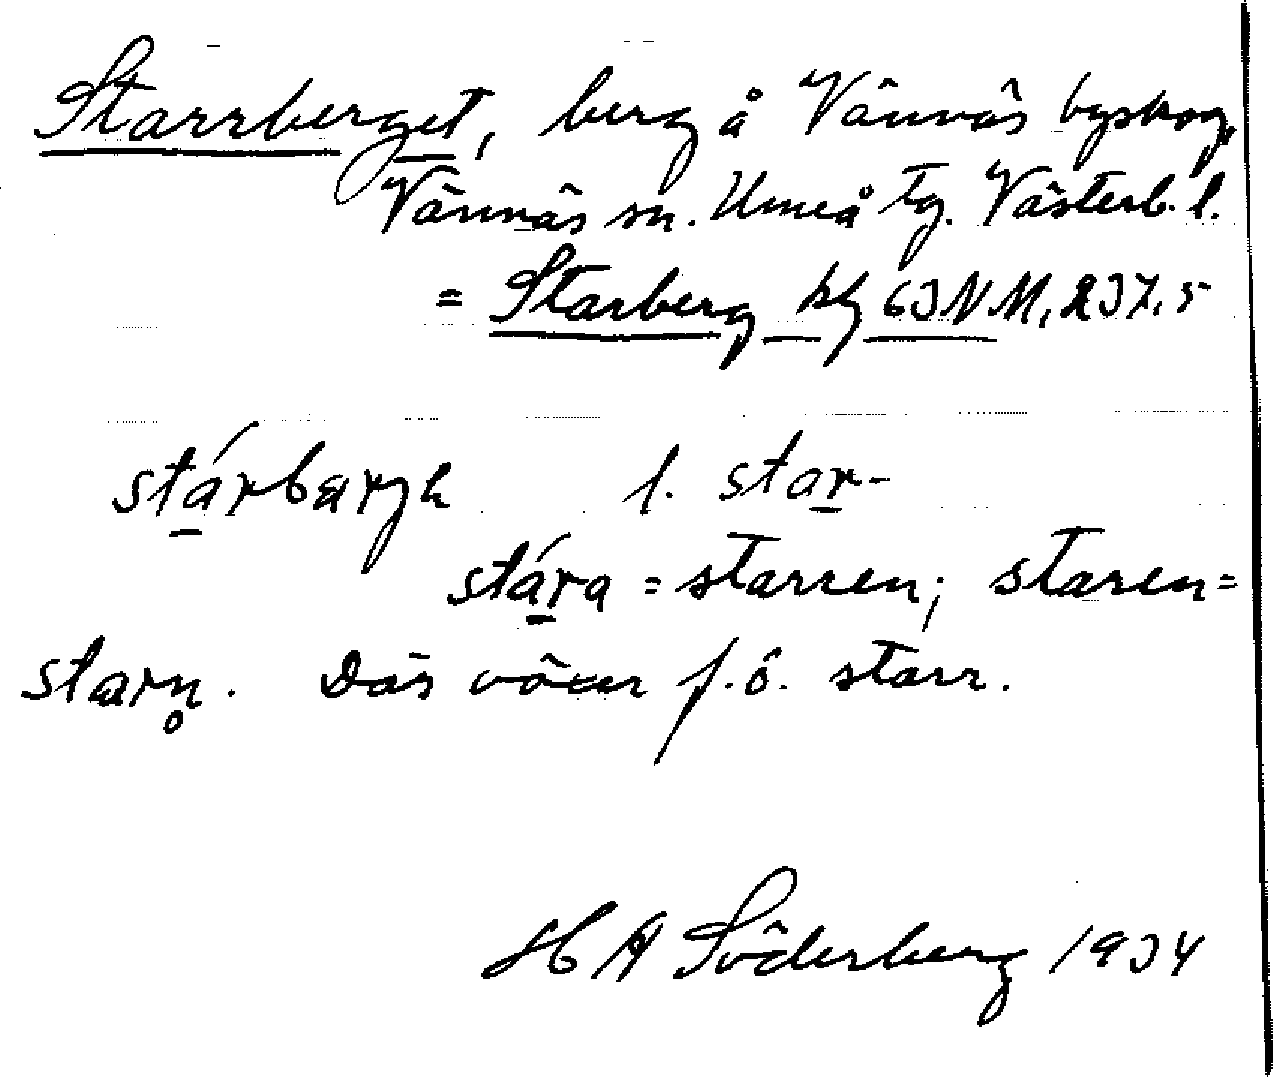 Starrberget, berg å Vännäs byskog,
Vännäs sn. Umeå tg. Västerb. l.
= Starberg bl 63 NM, 237.5
stárbærjæ l. star-
stára = starren; staren =
starn. Där växer f.ö. starr.
H A Söderberg 1934